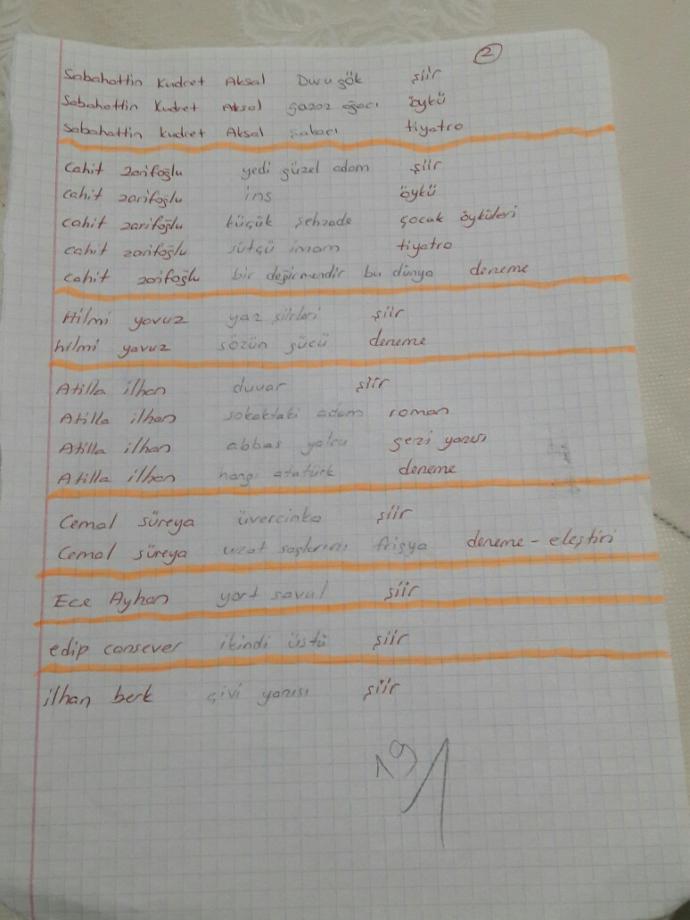 2
Sabahattin Kudret Aksal Duru gök şiir
Sabahattin Kudret Aksal gazoz ağacı öykü
Sabahattin kudret Aksal şakacı tiyatro
Cahit zarifoğlu yedi güzel adam şiir
Cahit zarifoğlu ins öykü
Cahit zarifoğlu küçük şehzade çocuk öyküleri
Cahit zarifoğlu sütçü imam tiyatro
Cahit zarifoğlu bir değirmendir bu dünya deneme
Hilmi yavuz yaz şiirleri şiir
hilmi yavuz sözün gücü deneme
Atilla ilhan duvar şiir
Atilla ilhan sokaktaki adam roman
Atilla ilhan abbas yolcu gezi yazısı
Atilla ilhan hangi atatürk deneme
Cemal süreya üvercinka şiir
Cemal süreya uzat saçlarını frigya deneme - eleştiri
Ece Ayhan yort savul şiir
edip cansever ikindi üstü şiir
ilhan berk çivi yazısı şiir
19